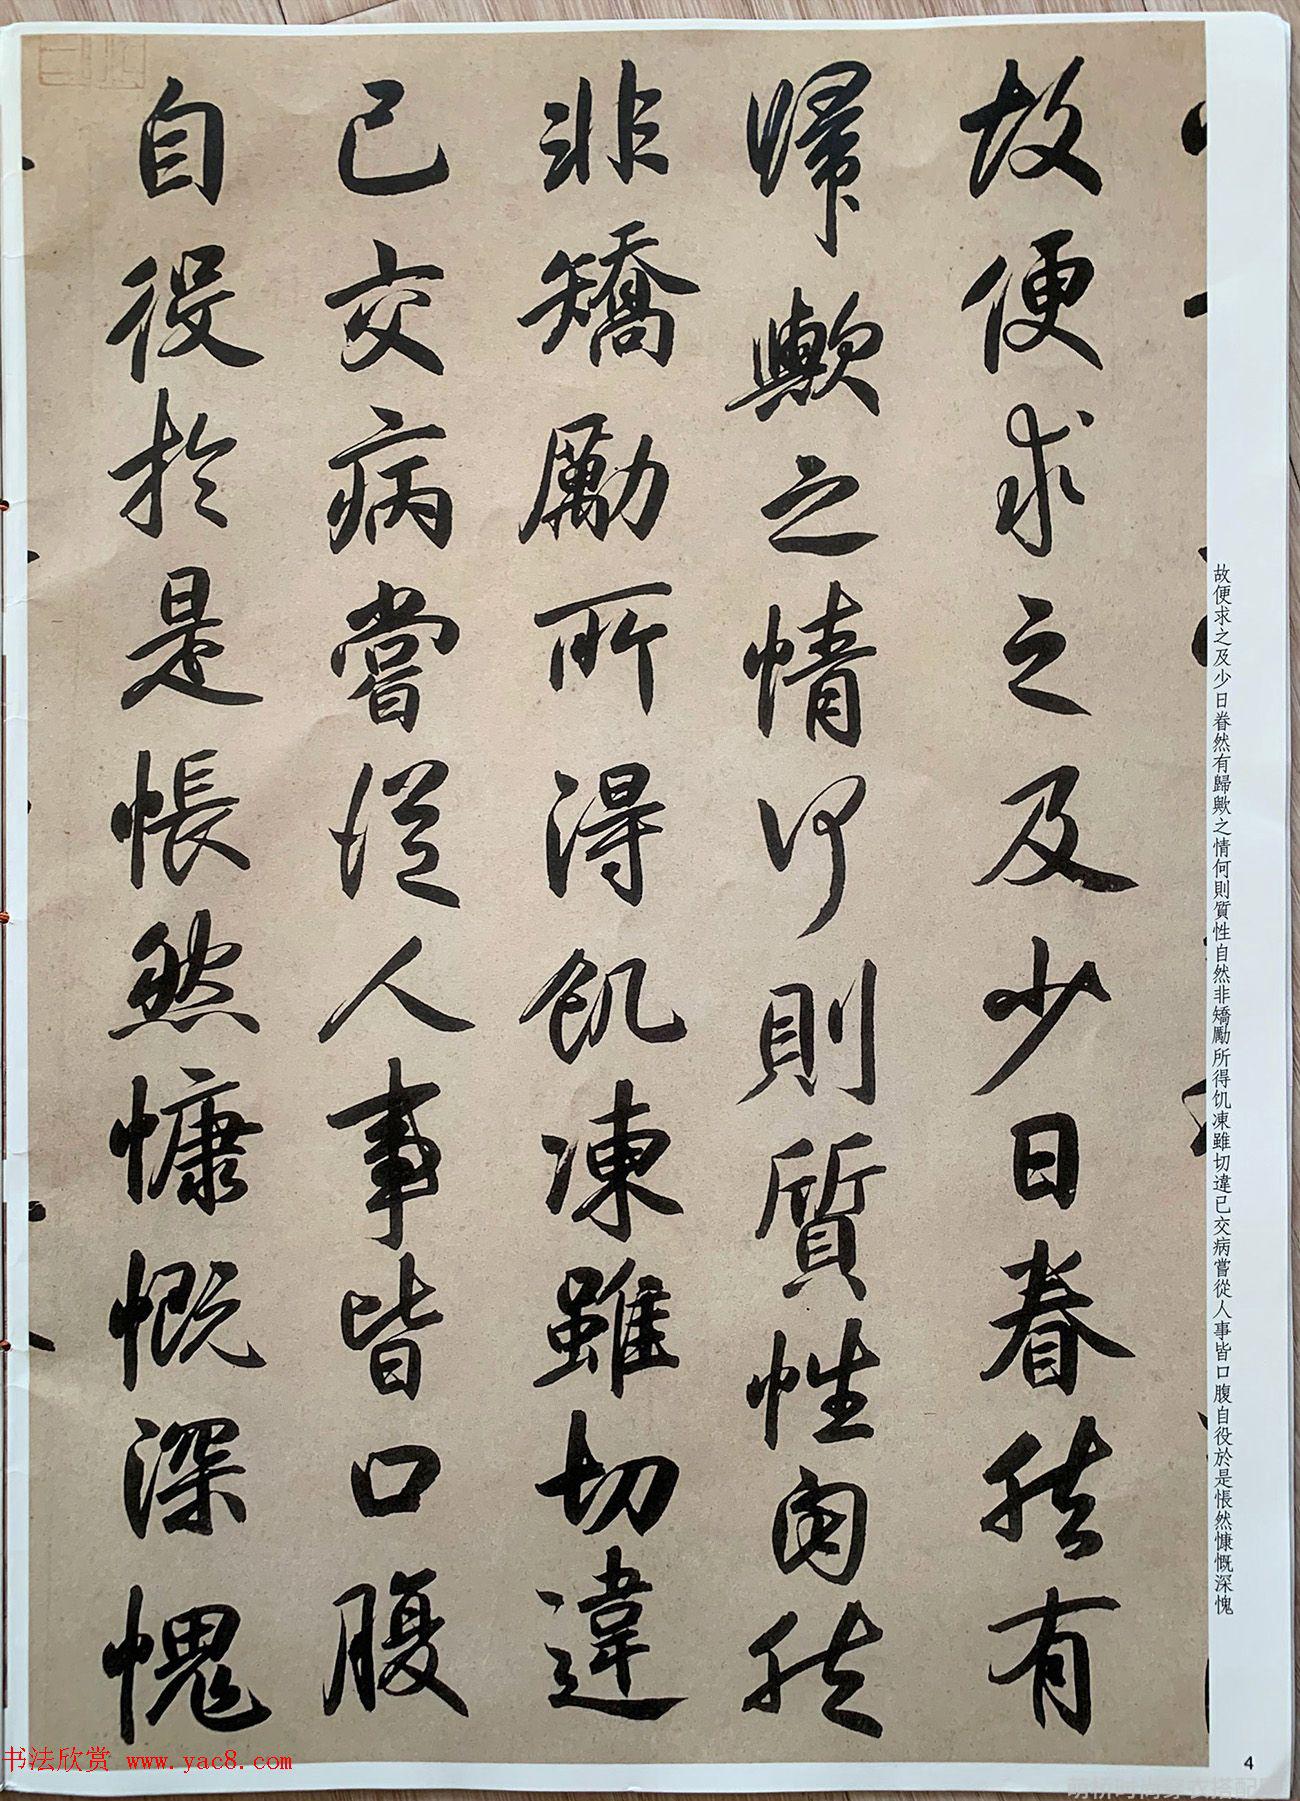 故便求之及少日眷然有
歸歟之情何則質性自然
非矯勵所得飢凍雖切違
己交病嘗從人事皆口腹
自役於是悵然慷慨深愧
故便求之及少日眷然有歸歟之情何則質性自然非矯勵所得飢凍雖切違已交病嘗從人事皆口腹自役於是悵然慷慨深愧
4
书法欣赏 www.yac8.com